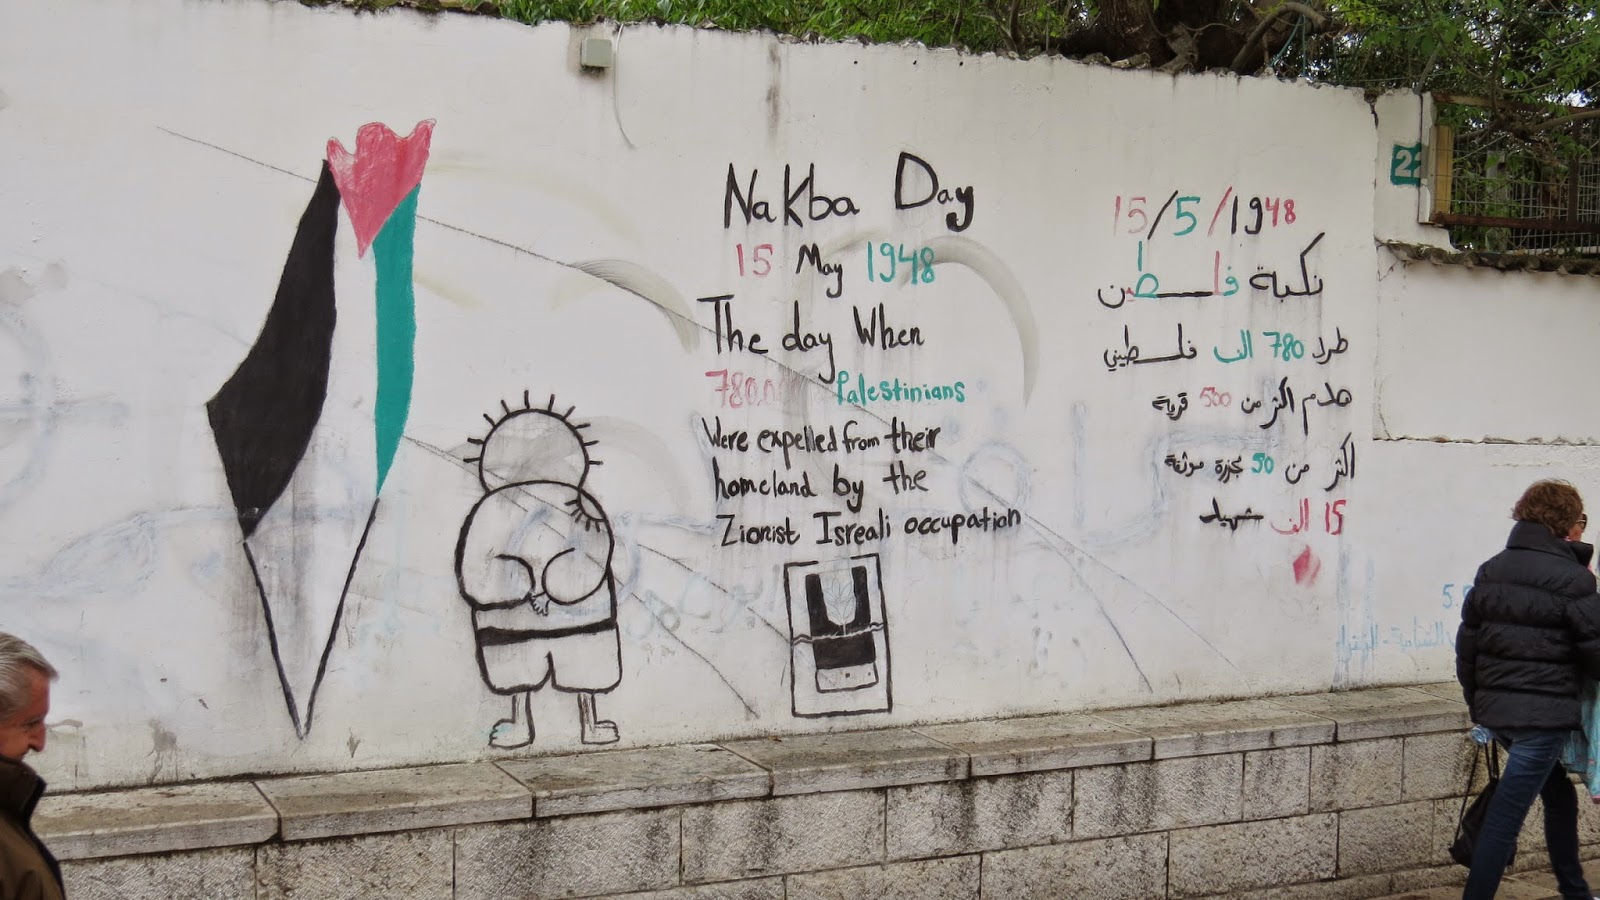 Nakba Day
15 May 1948
The day When
780,0 Palestinians
Were expelled from their
homeland by the
Zionist Isreali occupation
15/5/1948
نكبة فلسطين
طرد 780 الف فلسطيني
هدم اكثر من 500 قرية
اكثر من 50 مجزرة موثقة
15 الف شهيد
22